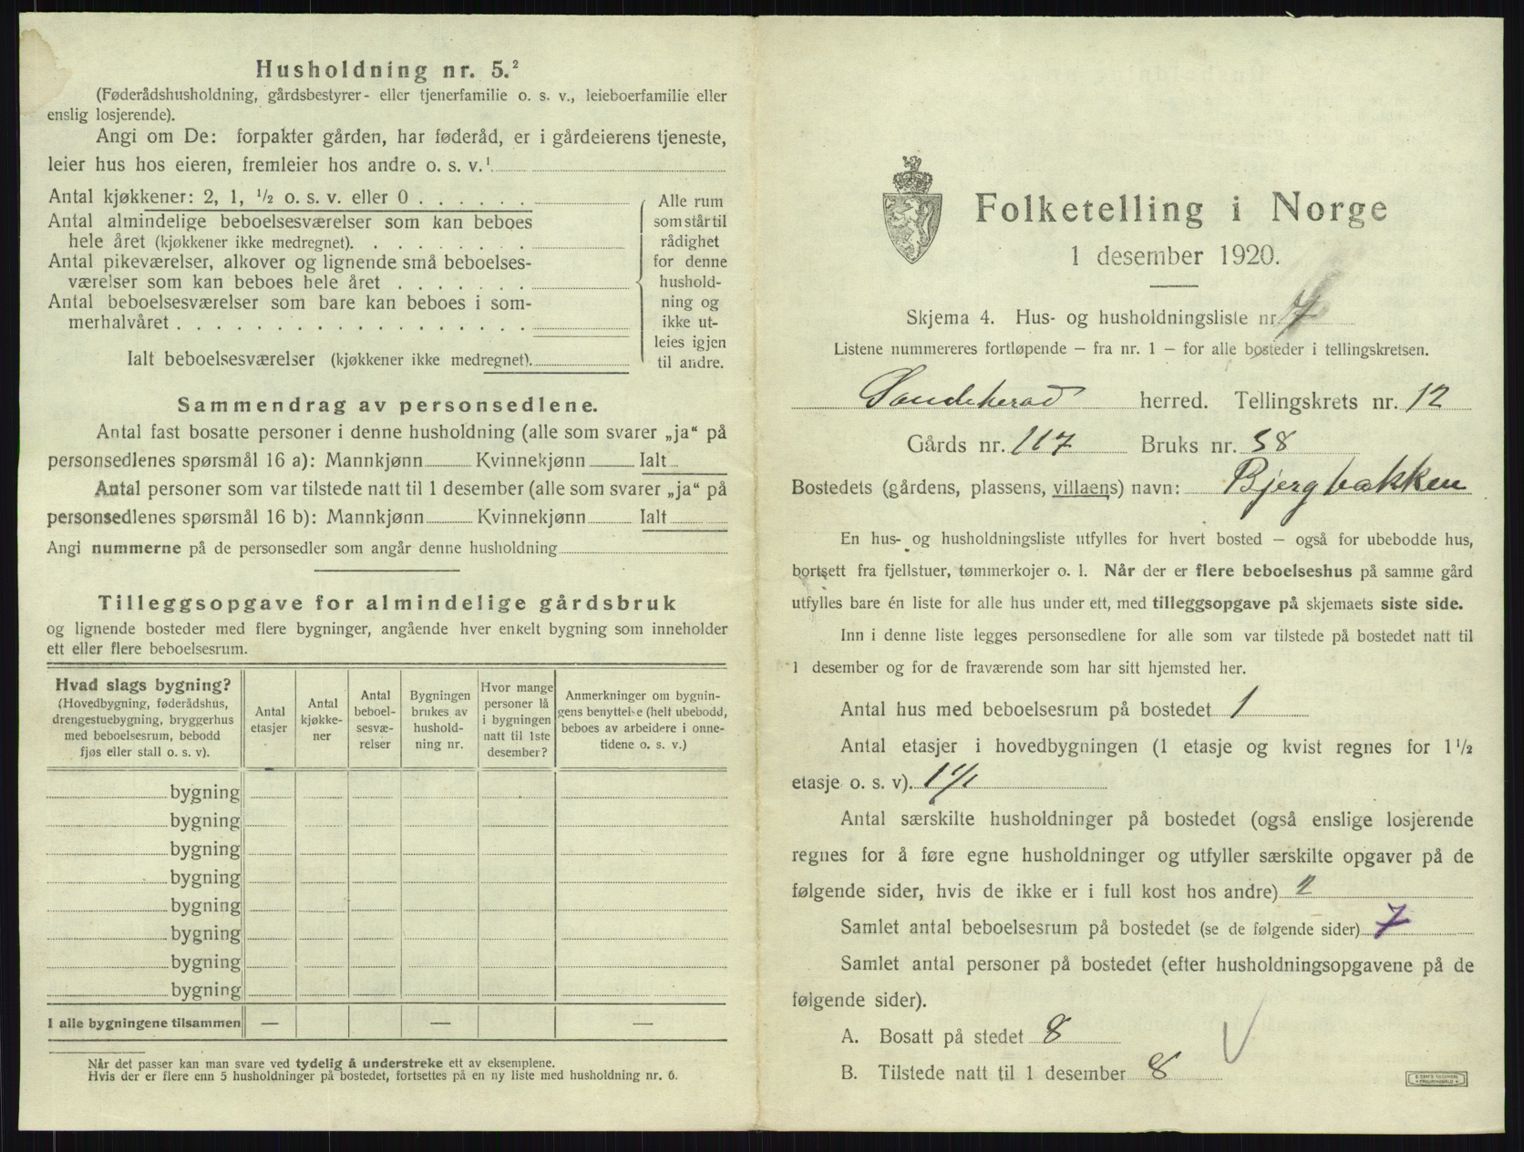 Husholdning nr. 5.²
(Føderådshusholdning, gårdsbestyrer- eller tjenerfamilie o. s. v., leieboerfamilie eller
enslig losjerende).
Angi om De: forpakter gården, har føderåd, er i gårdeierens tjeneste,
leier hus hos eieren, fremleier hos andre o. s. v.¹
Antal kjøkkener: 2, 1, ½ o. s. v. eller 0
Antal almindelige beboelsesværelser som kan beboes
hele året (kjøkkener ikke medregnet).
Antal pikeværelser, alkover og lignende små beboelses-
værelser som kan beboes hele året
Antal beboelsesværelser som bare kan beboes i som-
merhalvåret
Ialt beboelsesværelser (kjøkkener ikke medregnet).
Alle rum
som står til
rådighet
for denne
hushold-
ning og
ikke ut-
leies igjen
til andre.
Sammendrag av personsedlene.
Antal fast bosatte personer i denne husholdning (alle som svarer „ja“ på
personsedlenes spørsmål 16 a): Mannkjønn Kvinnekjønn Ialt
Antal personer som var tilstede natt til 1 desember (alle som svarer „ja“ på
personsedlenes spørsmål 16 b): Mannkjønn Kvinnekjønn Ialt
Angi nummerne på de personsedler som angår denne husholdning
Tilleggsopgave for almindelige gårdsbruk
og lignende bosteder med flere bygninger, angående hver enkelt bygning som inneholder
ett eller flere beboelsesrum.
Hvad slags bygning?
(Hovedbygning, føderådshus,
drengestuebygning, bryggerhus
med beboelsesrum, bebodd
fjøs eller stall o. s. v).
Antal
etasjer
Antal
kjøkke-
ner
Antal
beboel-
sesvæ-
relser
Bygningen
brukes av
hushold-
ning nr.
Hvor mange
personer lå
i bygningen
natt til 1ste
desember?
Anmerkninger om bygnin-
gens benyttelse (helt ubebodd,
beboes av arbeidere i onne-
tidene o. s. v.)
bygning
bygning
bygning
bygning
bygning
bygning
bygning
bygning
I alle bygningene tilsammen — — —
Når det passer kan man svare ved tydelig å understreke ett av eksemplene.
Hvis der er flere enn 5 husholdninger på bostedet, fortsettes på en ny liste med husholdning nr. 6.
Folketelling i Norge
1 desember 1920.
Skjema 4. Hus- og husholdningsliste nr. 7
Listene nummereres fortløpende — fra nr. 1 — for alle bosteder i tellingskretsen.
Sandeherad herred. Tellingskrets nr. 12
Gårds nr. 117 Bruks nr. 58
Bostedets (gårdens, plassens, villaens) navn: Bjergbakken
En hus- og husholdningsliste utfylles for hvert bosted — også for ubebodde hus,
bortsett fra fjellstuer, tømmerkojer o. l. Når der er flere beboelseshus på samme gård
utfylles bare én liste for alle hus under ett, med tilleggsopgave på skjemaets siste side.
Inn i denne liste legges personsedlene for alle som var tilstede på bostedet natt til
1 desember og for de fraværende som har sitt hjemsted her.
Antal hus med beboelsesrum på bostedet 1
Antal etasjer i hovedbygningen (1 etasje og kvist regnes for 1½
etasje o. s. v).
Antal særskilte husholdninger på bostedet (også enslige losjerende
regnes for å føre egne husholdninger og utfyller særskilte opgaver på de
følgende sider, hvis de ikke er i full kost hos andre) 2
Samlet antal beboelsesrum på bostedet (se de følgende sider) 7
Samlet antal personer på bostedet (efter husholdningsopgavene på de
følgende sider).
A. Bosatt på stedet 8
B. Tilstede natt til 1 desember 8